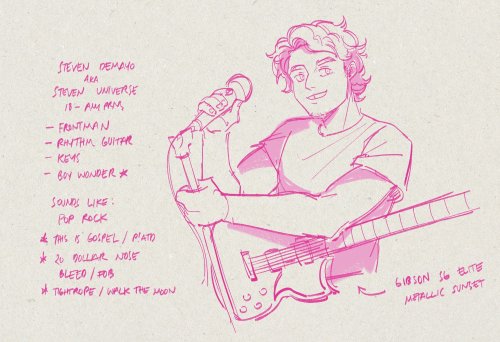 STEVEN DEMAYO
AKA
STEVEN UNIVERSE
18 -
- FRONTMAN
- RHYTHM GUITAR
- KEYS
- BOY WONDER ★
SOUNDS LIKE:
POP ROCK
★ THIS IS GOSPEL / P!ATD
★ 20 DOLLAR NOSE
BLEED / FOB
★ TIGHTROPE / WALK THE MOON
GIBSON SG ELITE
METALLIC SUNSET